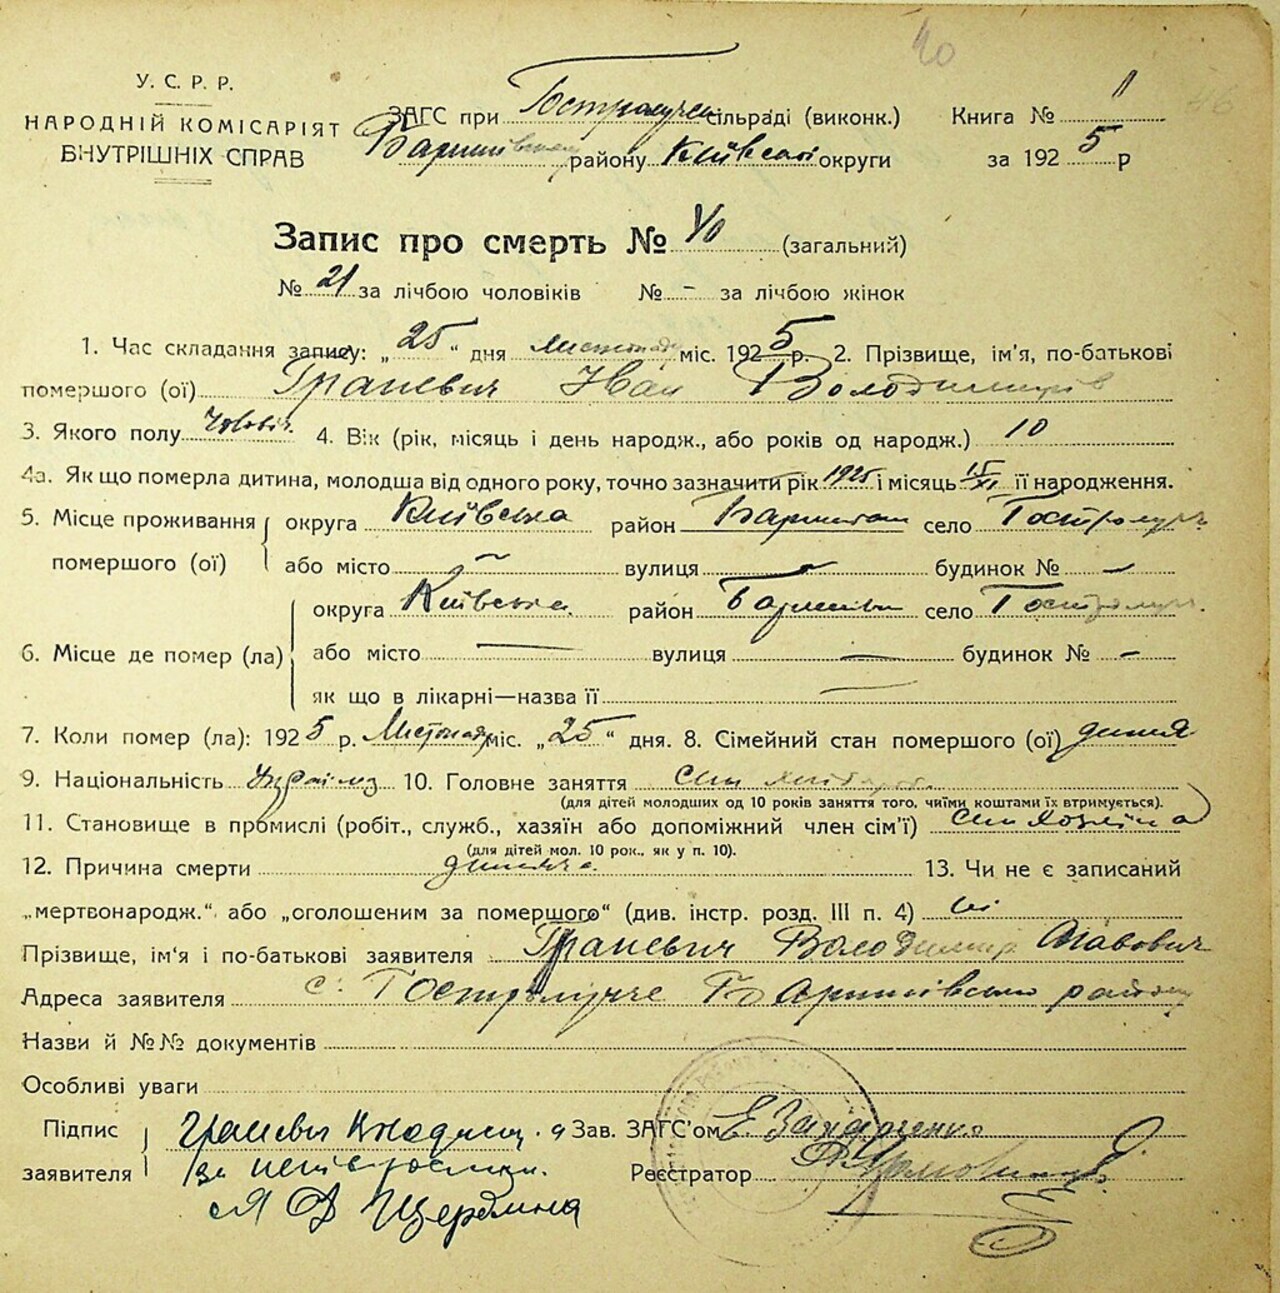 40
У. С. Р. Р.
НАРОДНІЙ КОМІСАРІЯТ
ВНУТРІШНІХ СПРАВ
ЗАГС при Гостролуч. сільраді (виконк.) Книга № 1
Баришівськ. району Київської округи за 1925 р
Запис про смерть № 40 (загальний)
№ 21 за лічбою чоловіків № - за лічбою жінок
1. Час складання запису: „25“ дня листопад міс. 1925 р. 2. Прізвище, ім'я, по-батькові
помершого (ої) Граневич Иван Володимирів
3. Якого полу чоловіч. 4. Вік (рік, місяць і день народж., або років од народж.) 10
4а. Як що померла дитина, молодша від одного року, точно зазначити рік 1925 і місяць 15/XI її народження.
5. Місце проживання помершого (ої) округа Київська район село Гостролучч
або місто – вулиця – будинок № –
6. Місце де помер (ла) округа Київська район село Гостролуч.
або місто — вулиця — будинок № –
як що в лікарні—назва її —
7. Коли помер (ла): 1925 р. Листопад міс. „25“ дня. 8. Сімейний стан помершого (ої) дитя
9. Національність Україн 10. Головне заняття син хліборoб.
(для дітей молодших од 10 років заняття того, чиїми коштами їх втримується).
11. Становище в промислі (робіт., служб., хазяїн або допоміжний член сім'ї) син хозяїна
(для дітей мол. 10 рок., як у п. 10).
12. Причина смерти дитяча. 13. Чи не є записаний
„мертвонародж.“ або „оголошеним за помершого“ (див. інстр. розд. III п. 4) ні
Прізвище, ім'я і по-батькові заявителя Граневич Володимир
Адреса заявителя с. Гостролучче Баришівськ району
Назви й №№ документів
Особливі уваги
Підпис заявителя Граневич а Зав. ЗАГС'ом Е Захарченко
за Реєстратор
Я Щербина